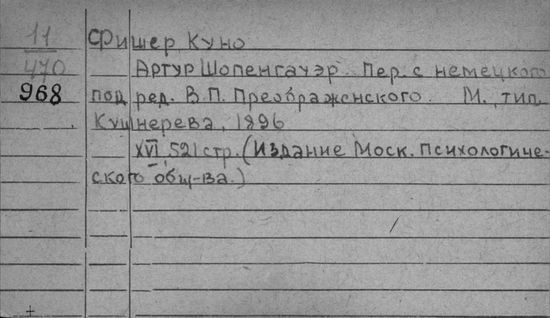 11 Фишер Куно
470 Артур Шопенгауэр. Пер. с немецкого
968 под ред. В.П. Преображенского. М. тип.
Кушнерева, 1896
XVI, 521 стр. (Издание Моск. психологиче-
ского общ-ва.)